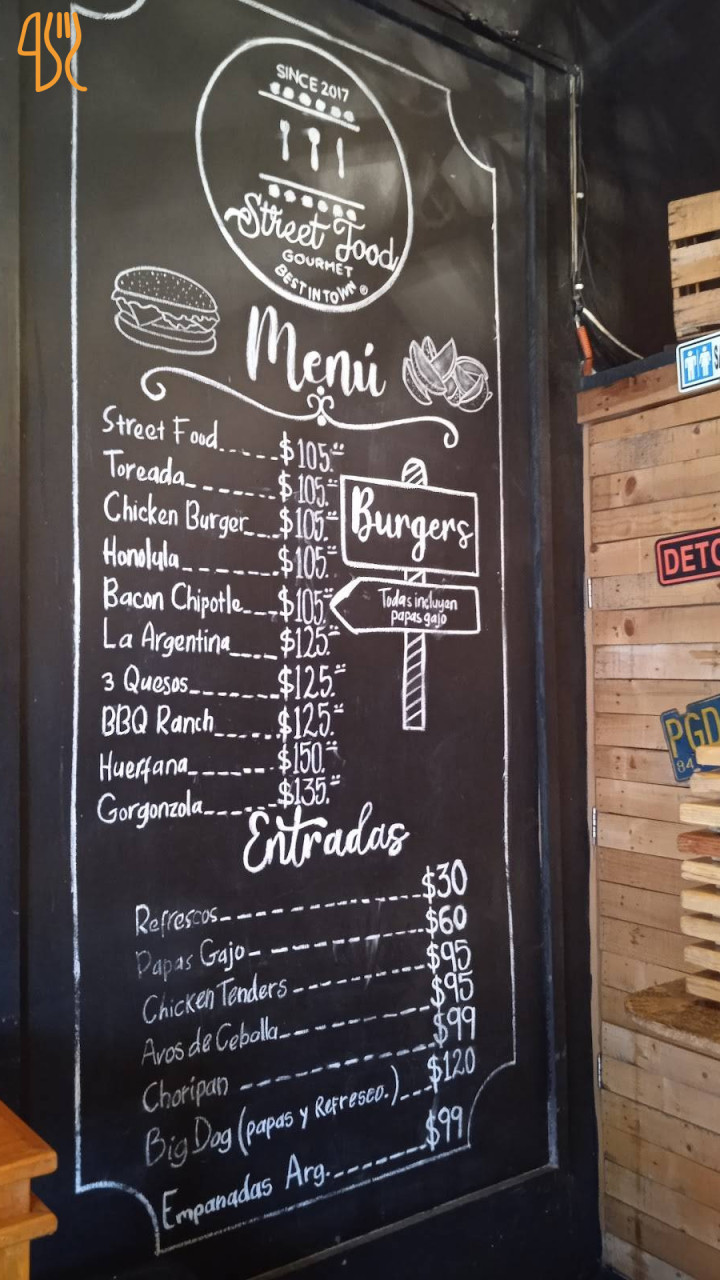 SINCE 2017
Street Food
GOURMET
BEST IN TOWN ®
Menú
Street Food......$105.00
Toreada_______$105.00
Chicken Burger___$105.00
Honolula_______$105.00
Bacon Chipotle___$105.00
La Argentina____$125.00
3 Quesos_______$125.00
BBQ Ranch_____$125.00
Huerfana_______$150.00
Gorgonzola______$135.00
Burgers
Todas incluyen
papas gajo
Entradas
Refrescos----------$30
Papas Gajo---------$60
Chicken Tenders------$95
Aros de Cebolla------$95
Choripan ----------$99
Big Dog (papas y Refresco.)---$120
Empanadas Arg.------$99
DETO
PGD
84